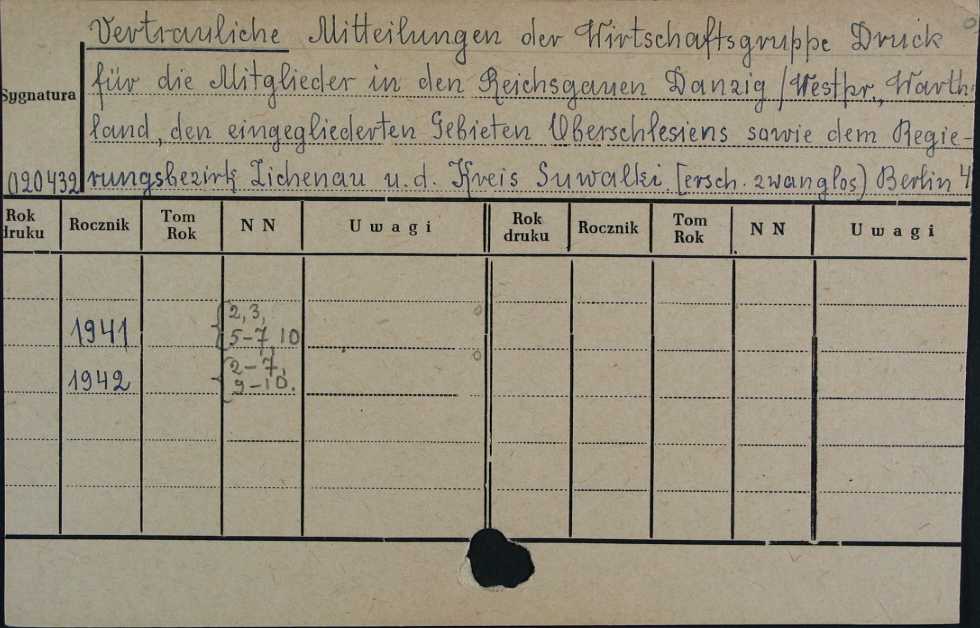 Vertrauliche Mitteilungen der Wirtschaftsgruppe Druck
für die Mitglieder in den Reichsgauen Danzig/Westpr., Warth-
Sygnatura
land, den eingegliederten Gebieten Oberschlesiens sowie dem Regie-
020432 rungsbezirk Zichenau u. d. Kreis Suwalki. [ersch. zwanglos) Berlin 4
Rok druku Rocznik Tom Rok NN Uwagi Rok druku Rocznik Tom Rok NN Uwagi
1941 2, 3, 5-7, 10
1942 2-7, 9-10.